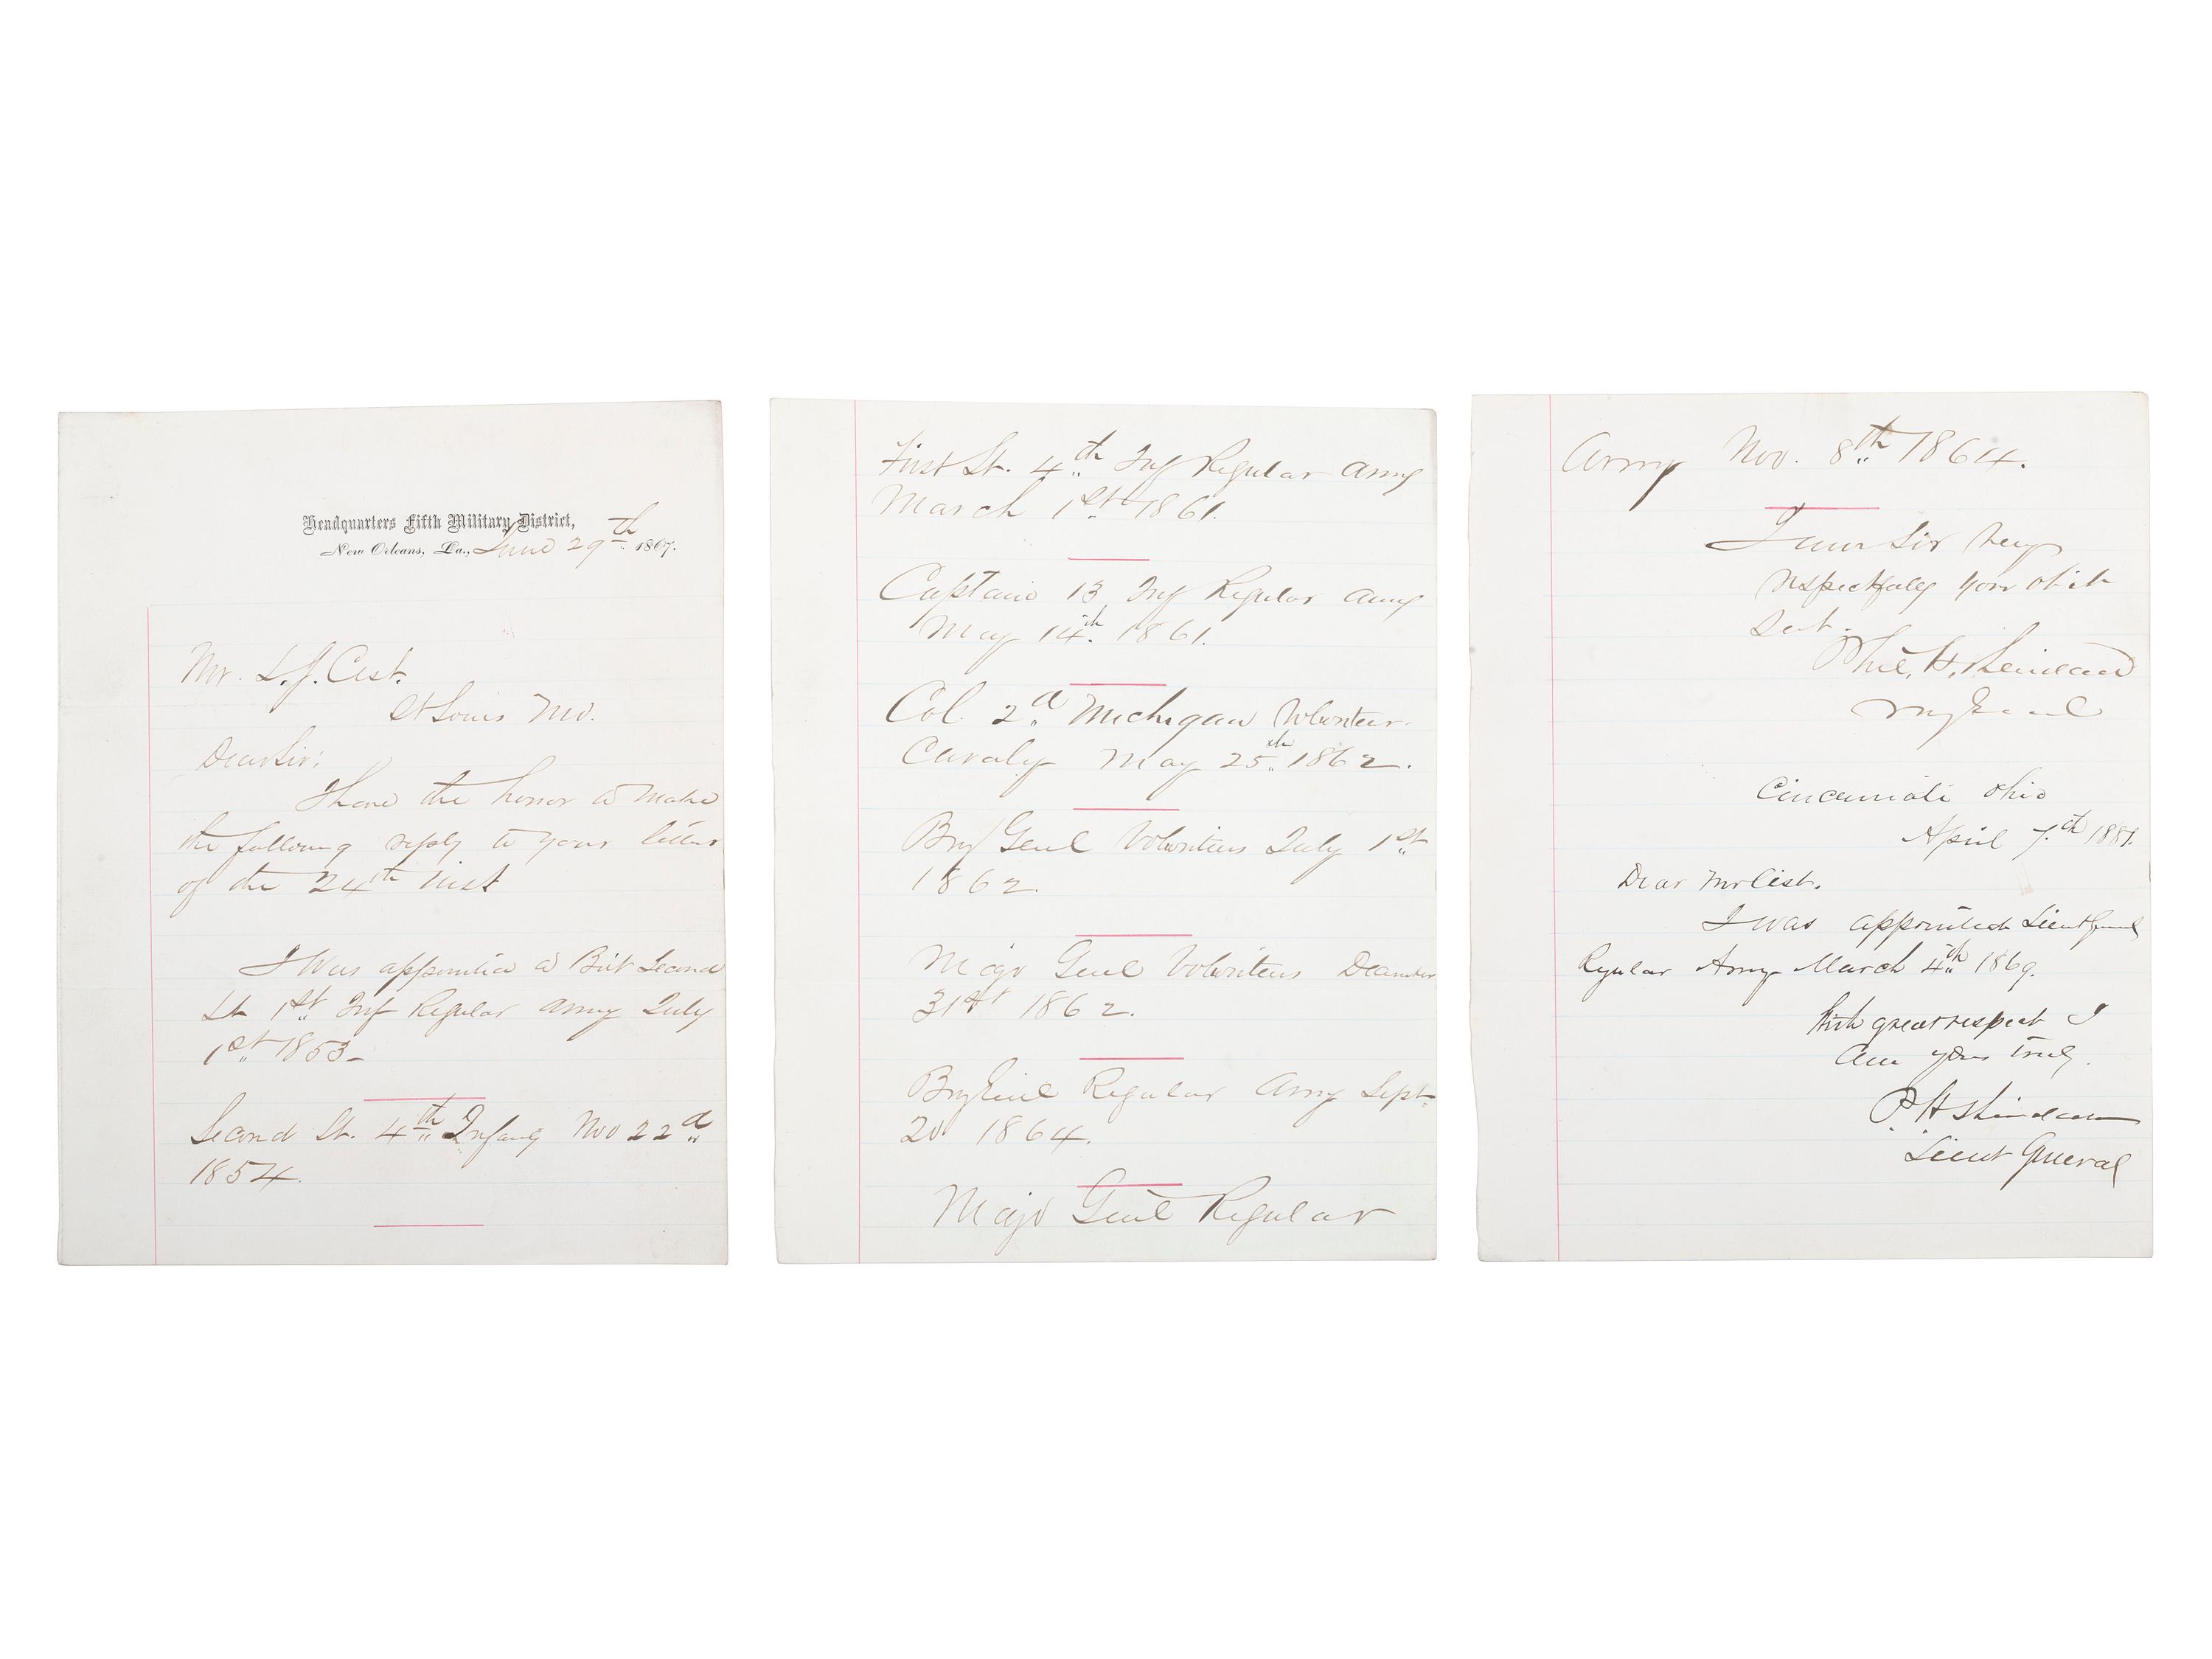 Headquarters Fifth Military District,
New Orleans, La., June 29th 1867.
Mr. L. J. Cist.
St Louis Mo.
Dear Sir:
I have the honor to make
the following reply to your letter
of the 24th inst
I was appointed a Bvt Second
Lt 1st Inf Regular Army July
1st 1853-
Second Lt. 4th Infany Nov 22d
1854.
First Lt. 4th Inf Regular Army
March 1st 1861.
Captain 13 Inf Regular Army
May 14th 1861.
Col. 2d Michigan Volunteer
Cavaly May 25th 1862.
Brig Genl Volunteers July 1st
1862.
Major Genl Volunteers December
31st 1862.
Brig Genl Regular Army Sept
20 1864.
Major Genl Regular
Army Nov. 8th 1864.
I am Sir Very
respectfully your obdt
Svt.
Phil. H. Sheridan
Maj Genl
Cincinnati Ohio
April 7th 1881.
Dear Mr Cist.
I was appointed Lieut Genl
Regular Army March 4th 1869.
With great respect I
am yours truly.
P. H. Sheridan
Lieut General